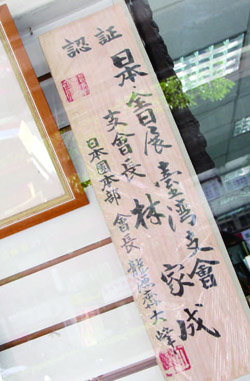 認証
日本全日展臺灣支會
支會長 林家成
日本國本部 會長 龍源齋大峰